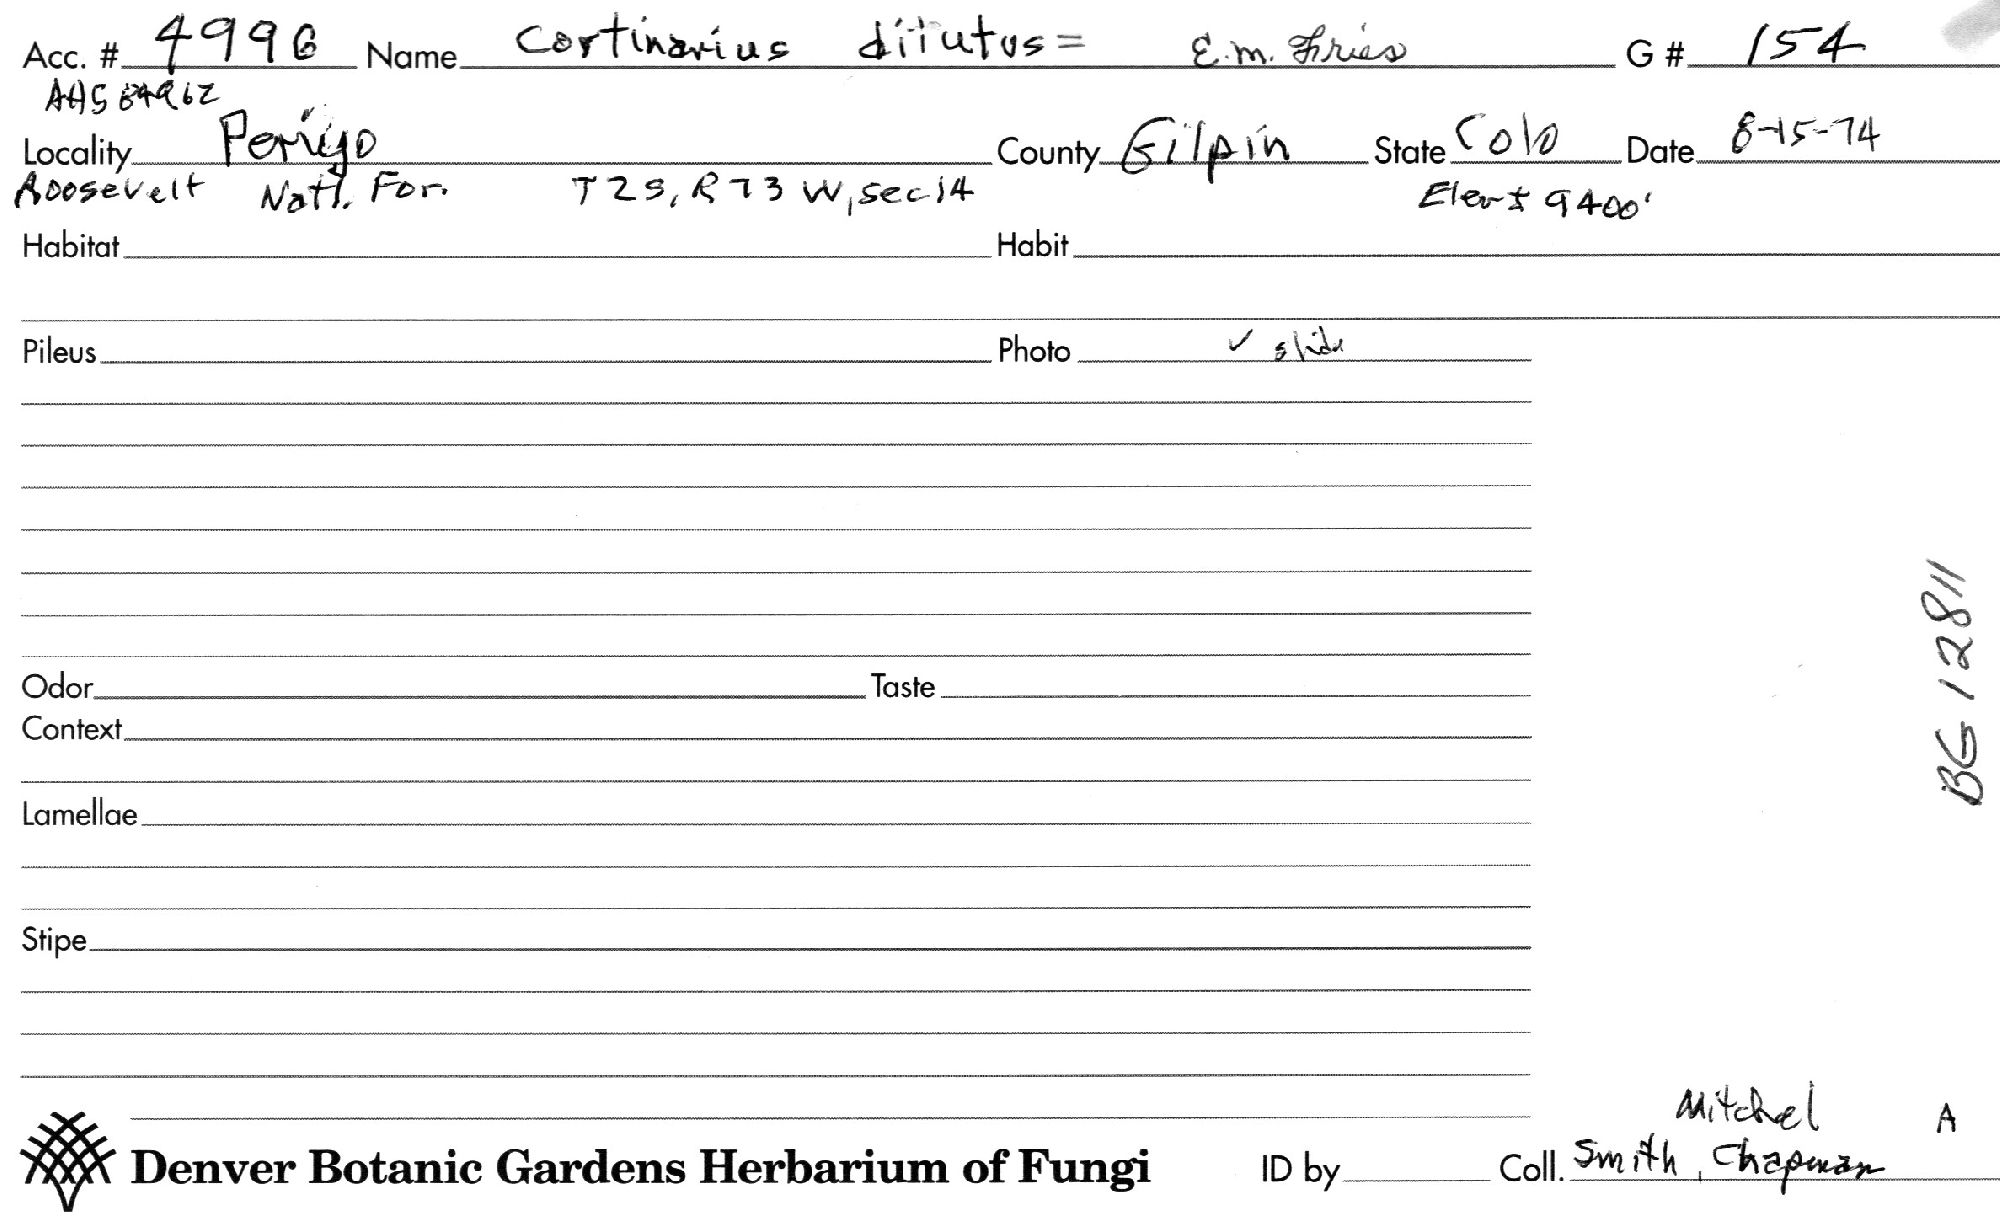 Acc. # 4996 Name Cortinarius dilutus = E.M. Fries G # 154
AHS
Locality Perigo County Gilpin State Colo Date 8-15-74
Roosevelt Natl. For. T2S, R73W, sec 14 Elev ± 9400'
Habitat Habit
Pileus Photo ✓ slide
Odor Taste
Context
Lamellae
Stipe
BG 12811
Mitchel A
Denver Botanic Gardens Herbarium of Fungi ID by Coll. Smith, Chapman